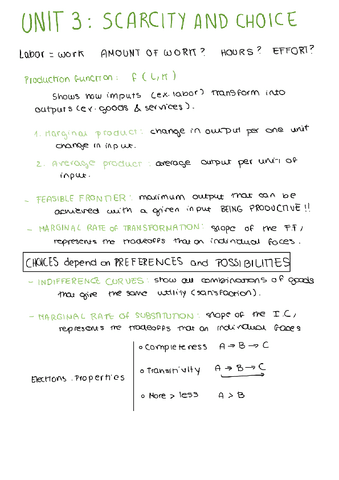 UNIT 3: SCARCITY AND CHOICE
Labor = work AMOUNT OF WORK? HOURS? EFFORT?
Production function: f(L,M)
Shows how inputs (ex. labor) transform into
outputs (ex. goods & services).
1. Marginal product: change in output per one unit
change in input.
2. Average product: average output per unit of
input.
- FEASIBLE FRONTIER: maximum output that can be
achieved with a given input BEING PRODUCTIVE!!
- MARGINAL RATE OF TRANSFORMATION: slope of the F.F,
represents the tradeoffs that an individual faces.
CHOICES depend on PREFERENCES and POSSIBILITIES
- INDIFFERENCE CURVES: show all combinations of goods
that give the same utility (satisfaction).
- MARGINAL RATE OF SUBSTITUTION: slope of the I.C,
represents the tradeoffs that an individual faces
o Completeness A → B → C
Elections. Properties o Transitivity A → B → C
o More > less A > B